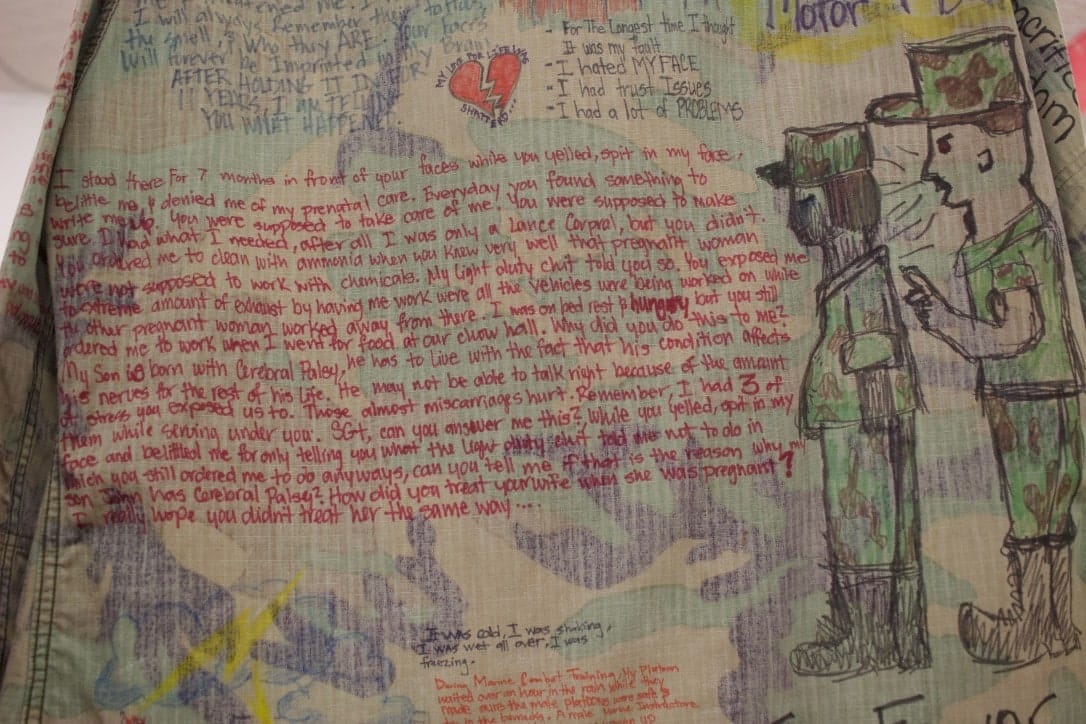 I will always Remember
the smell, & who they ARE. Your faces
will forever be Imprinted in my brain.
AFTER HOLDING IT IN FOR
11 YEARS, I AM TELLING
YOU WHAT HAPPENED.
MY LOVE FOR LIFE WAS
SHATTERED...
- For The Longest time I thought
It was my fault
- I hated MY FACE
- I had trust Issues
- I had a lot of PROBLEMS
Motor
I stood there For 7 months in front of your faces while you yelled, spit in my face,
belittle me, & denied me of my prenatal care. Everyday you found something to
write me up. You were supposed to take care of me! You were supposed to make
sure I had what I needed, after all I was only a Lance Corpral, but you didn't.
You ordered me to clean with ammonia when you knew very well that pregnant woman
were not supposed to work with chemicals. My light duty chit told you so. You exposed me
to extreme amount of exhaust by having me work were all the vehicles were being worked on while
the other pregnant woman worked away from there. I was on bed rest & hungry but you still
ordered me to work when I went for food at our chow hall. Why did you do this to ME?
My Son is born with Cerebral Palsy, he has to live with the fact that his condition affects
his nerves for the rest of his life. He may not be able to talk right because of the amount
of stress you exposed us to. Those almost miscarriages hurt. Remember, I had 3 of
them while serving under you. SGt, can you answer me this? While you yelled, spit in my
face and belittled me for only telling you what the light duty chit told me not to do in
which you still ordered me to do anyways, can you tell me if that is the reason why my
son John has Cerebral Palsy? How did you treat your wife when she was pregnant?
I really hope you didn't treat her the same way....
It was cold, I was shaking,
I was wet all over, I was
freezing.
During Marine Combat Training, My Platoon
waited over an hour in the rain while they
made sure the male platoons were safe &
in the barracks. A male